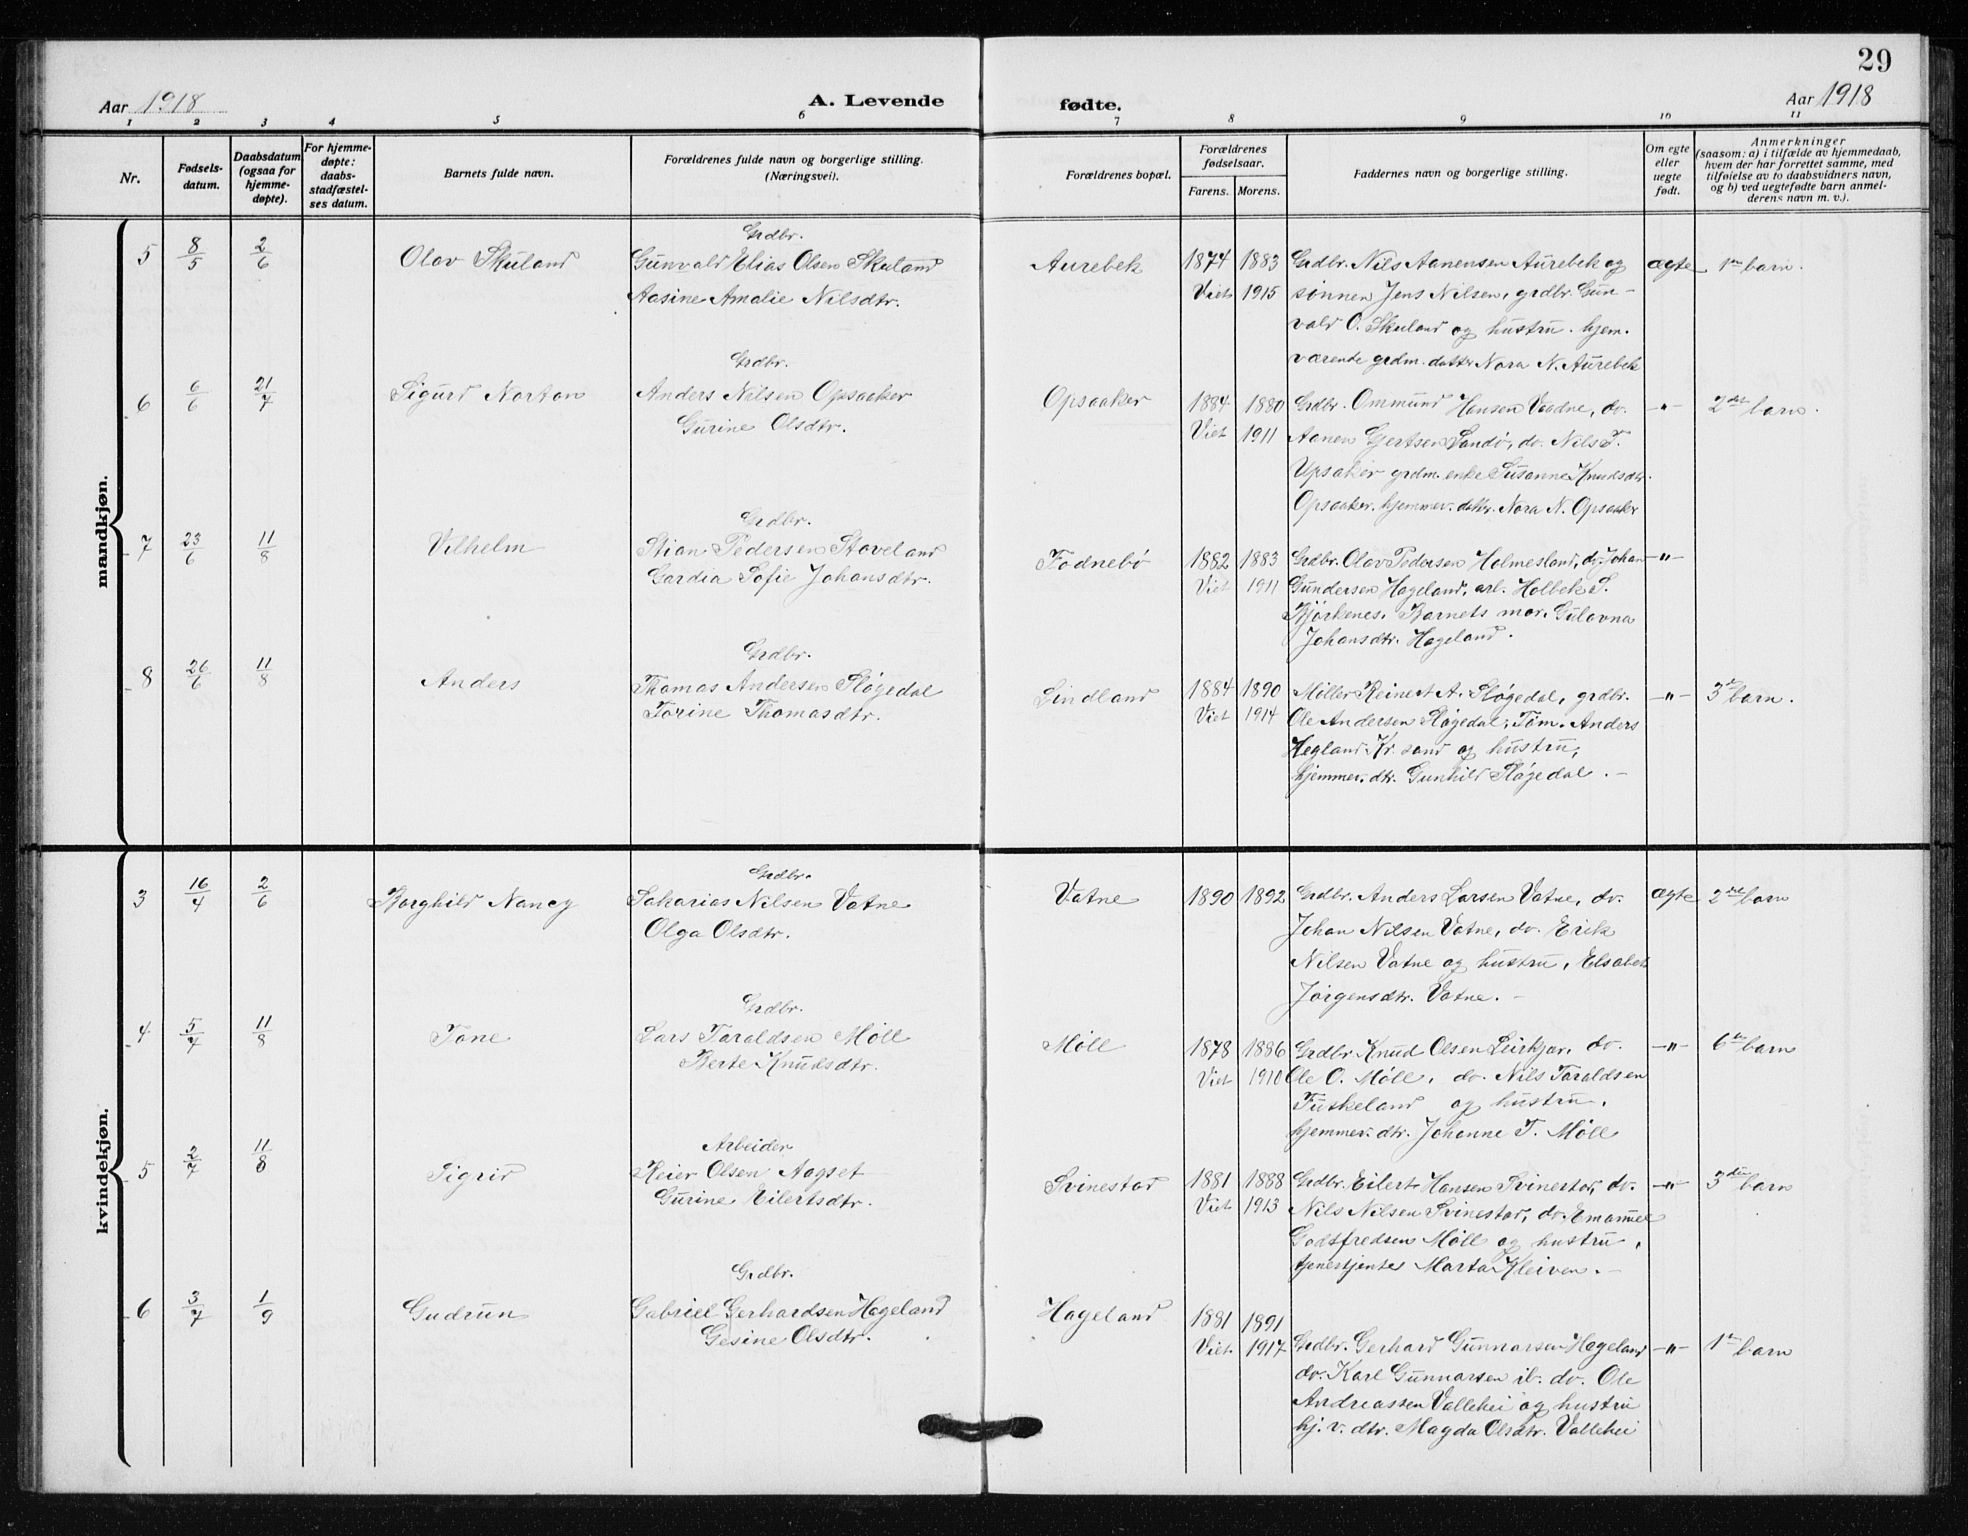 29
Aar 1918
A. Levende
fødte.
Aar 1918
1 2 3 4 5 6 7 8 9 10 11
Nr.
Fødsels-
datum.
Daabsdatum
(ogsaa for
hjemme-
døpte).
For hjemme-
døpte:
daabs-
stadfæstel-
ses datum.
Barnets fulde navn.
Forældrenes fulde navn og borgerlige stilling.
(Næringsvei).
Forældrenes bopæl.
Forældrenes
fødselsaar.
Farens. Morens.
Faddernes navn og borgerlige stilling.
Om egte
eller
uegte
født.
Anmerkninger
(saasom: a) i tilfælde av hjemmedaab,
hvem der har forrettet samme, med
tilføielse av to daabsvidners navn,
og b) ved uegtefødte barn anmel-
derens navn m. v.).
mandkjøn.
Grdbr.
5 8/5 2/6 Olav Skuland Gunvald Elias Olsen Skuland Aurebek 1874 1883 Grdbr. Nils Aanensen Aurebek og ægte 1ste barn.
Aasine Amalie Nilsdtr. Viet 1915 sønnen Jens Nilsen, grdbr. Gun-
vald O. Skuland og hustru. hjem.
værende grdm. datter Nora N. Aurebek
Grdbr.
6 6/6 21/7 Sigurd Norton Anders Nilsen Opsaaker Opsaaker 1884 1880 Grdbr. Ommund Hansen Vaadne, do. -"- 2det barn.
Gurine Olsdtr. Viet 1911 Aanen Gjertsen Sandø, do. Nils T.
Upsaker grdm. enke Susanne Knudsdtr.
Opsaaker. hjemmev. datter. Nora N. Opsaaker
Grdbr.
7 23/6 11/8 Vilhelm Stian Pedersen Staveland Fodnebø 1882 1883 Grdbr. Olav Pedersen Holmesland, do. Johan -"-
Gardia Sofie Johansdtr. Viet 1911 Gundersen Hageland, arb. Holbek S.
Bjørkenes. Barnets mor. Gulovna
Johansdtr. Hageland.
Grdbr.
8 26/6 11/8 Anders Thomas Andersen Sløgedal Lindland 1884 1890 Møller Reinert A. Sløgedal, grdbr. -"- 3die barn.
Torine Thomasdtr. Viet 1914 Ole Andersen Sløgedal, Tøm. Anders
Hegland Kr sand og hustru,
hjemmev. dtr. Gunhild Sløgedal. -
kvindekjøn.
Grdbr.
3 16/4 2/6 Borghild Nancy Saharias Nilsen Vatne Vatne 1890 1892 Grdbr. Anders Larsen Vatne, do. ægte 2det barn
Olga Olsdtr. Johan Nilsen Vatne, do. Erik
Nilsen Vatne og hustru, Elsabet
Jørgensdtr. Vatne. -
Grdbr.
4 5/7 11/8 Tone Lars Taraldsen Møll Møll 1878 1886 Grdbr. Knud Olsen Leirkjær, do. -"- 6te barn
Berte Knudsdtr. Viet 1910 Ole O. Møll, do. Nils Taraldsen
Fuskeland og hustru,
hjemmev. dtr. Johanne T. Møll
Arbeider
5 2/7 11/8 Sigrid Reier Olsen Aagset Svinestad 1881 1888 Grdbr. Eilert Hansen Svinestad, do. -"- 3die barn
Gurine Eilertsdtr. Viet 1913 Nils Nilsen Svinestad, do. Emanuel
Godtfredsen Møll og hustru,
tjenestjente Marta Kleiven. -
Grdbr.
6 3/7 1/9 Gudrun Gabriel Gerhardsen Hageland Hageland 1881 1891
Gesine Olsdtr. Viet 1917 Grdbr. Gerhard Gunnarsen Hageland -"- 1ste barn
do. Karl Gunnarsen ib. do. Ole
Andreassen Vallehei og hustru
hj. v. dtr. Magda Olsdtr. Vallehei